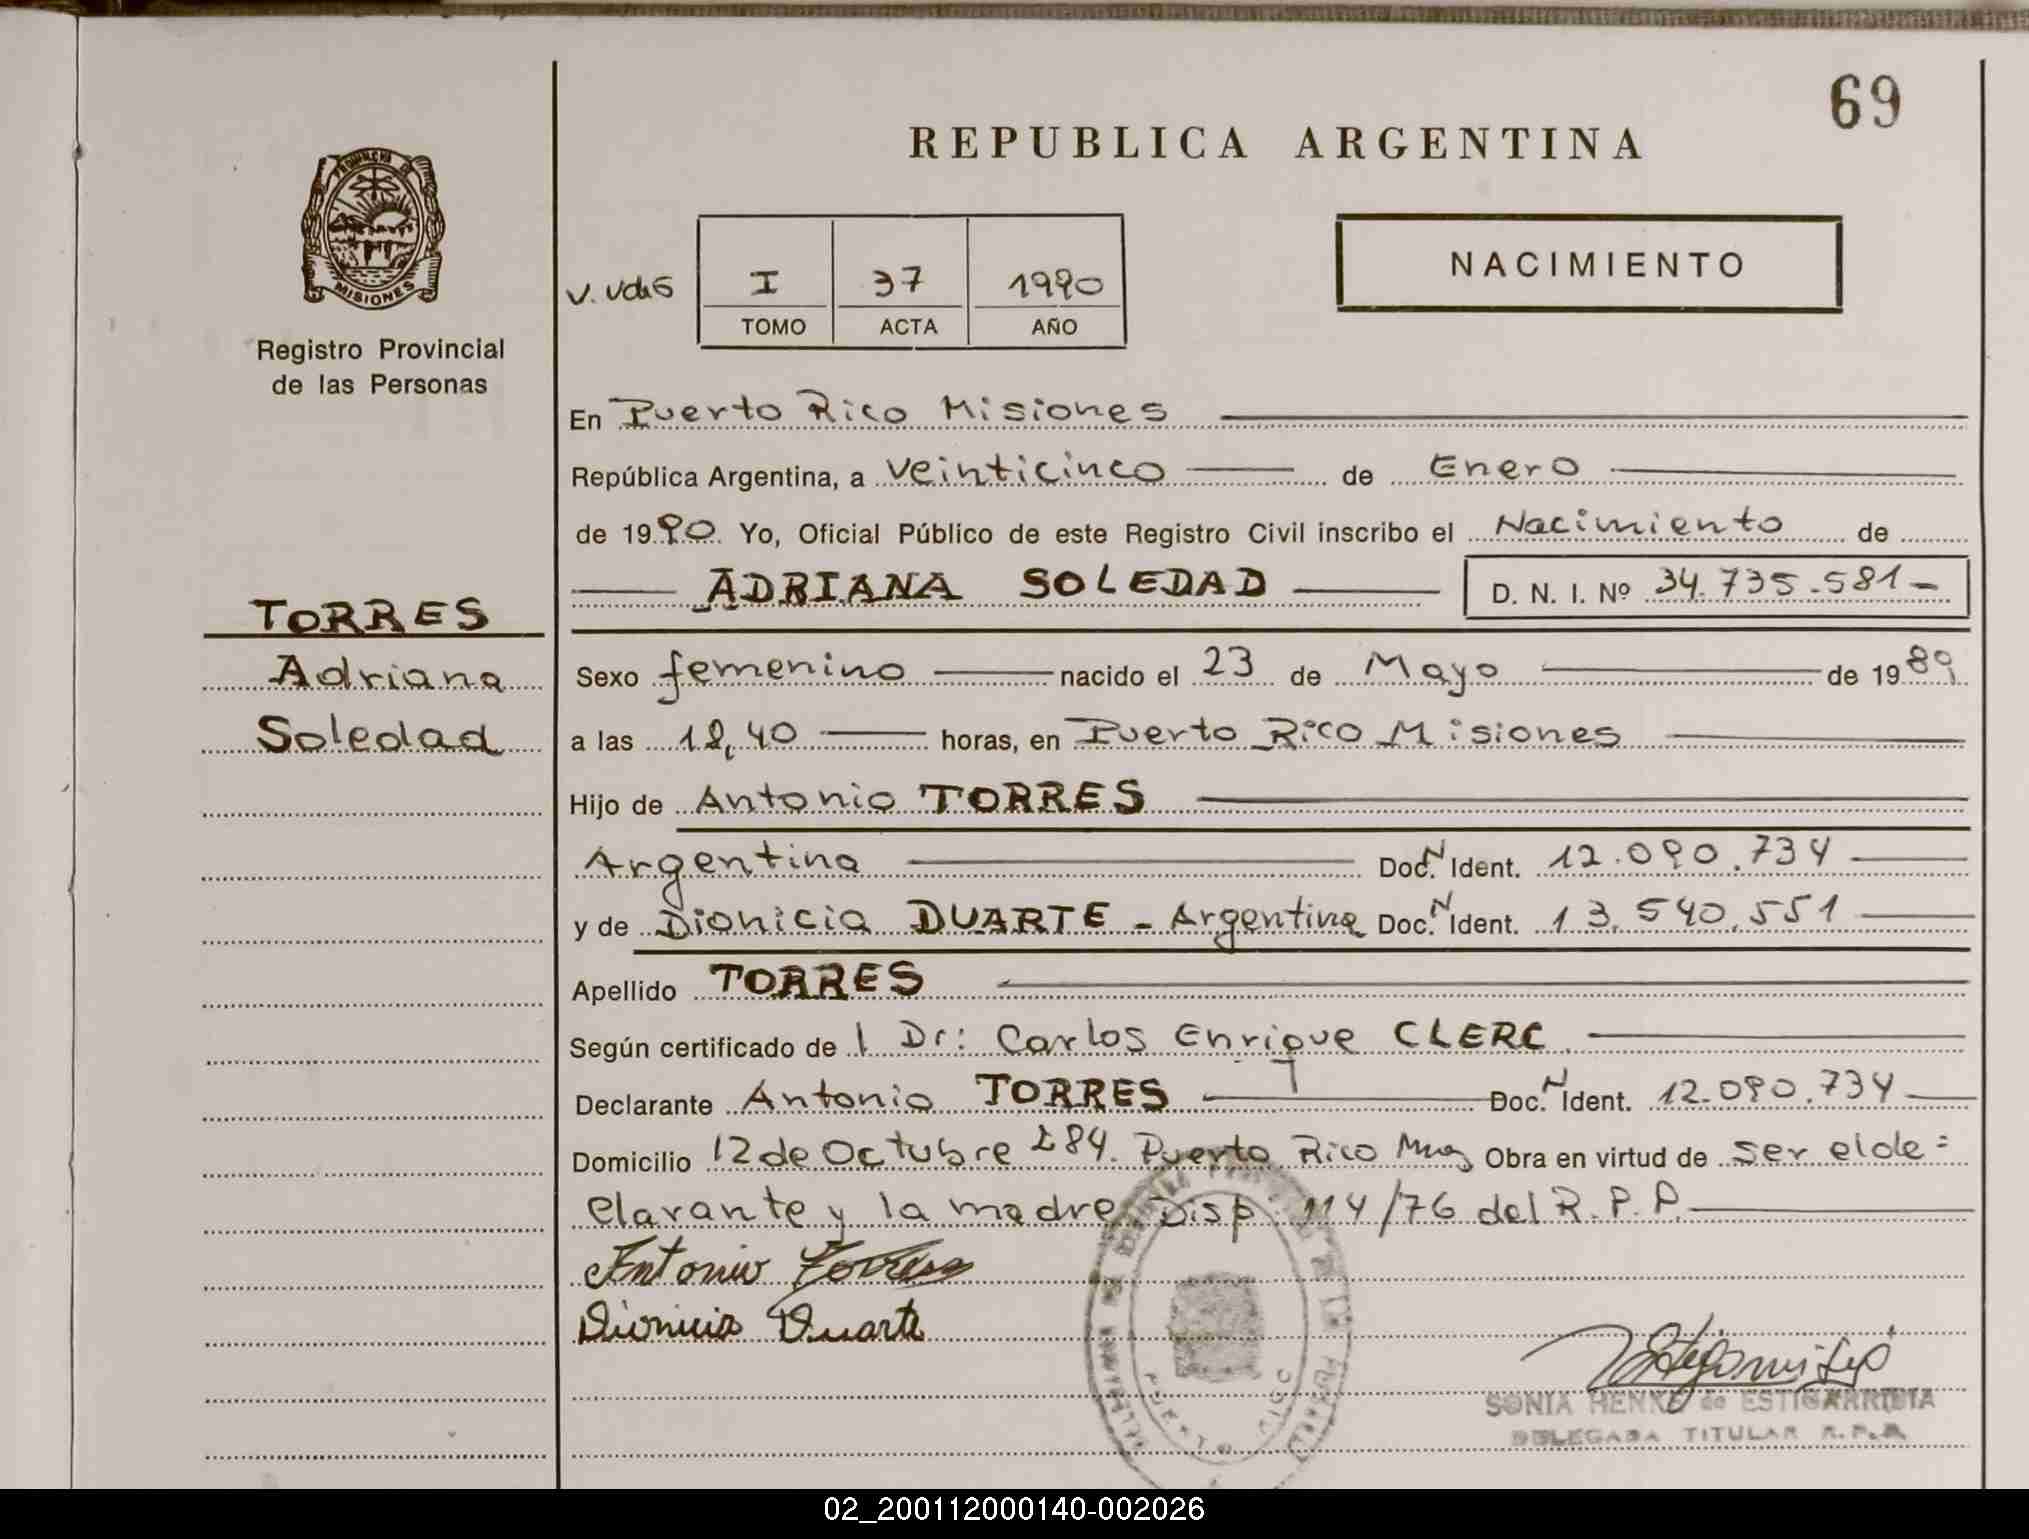 69
REPUBLICA ARGENTINA
PROVINCIA DE
MISIONES
Registro Provincial
de las Personas
NACIMIENTO
I 37 1990
TOMO ACTA AÑO
En Puerto Rico Misiones
República Argentina, a veinticinco de Enero
de 1990 Yo, Oficial Público de este Registro Civil inscribo el Nacimiento de
ADRIANA SOLEDAD D. N. I. Nº 34.735.581-
TORRES
Adriana
Soledad
Sexo femenino nacido el 23 de Mayo de 1989
a las 18,40 horas, en Puerto Rico Misiones
Hijo de Antonio TORRES
Argentina Doc. N Ident. 12.090.734
y de Dionicia DUARTE - Argentina Doc. N Ident. 13.540.551
Apellido TORRES
Según certificado de l Dr: Carlos Enrique CLERC.
Declarante Antonio TORRES Doc. N Ident. 12.090.734
Domicilio 12 de Octubre 284. Puerto Rico Mnes Obra en virtud de ser el de=
clarante y la madre Disp. 114/76 del R.P.P.
Antonio Torres
Dionicia Duarte
PUERTO RICO
SONIA HENKE de ESTIGARRIBIA
DELEGADA TITULAR R.P.P.
02_200112000140-002026